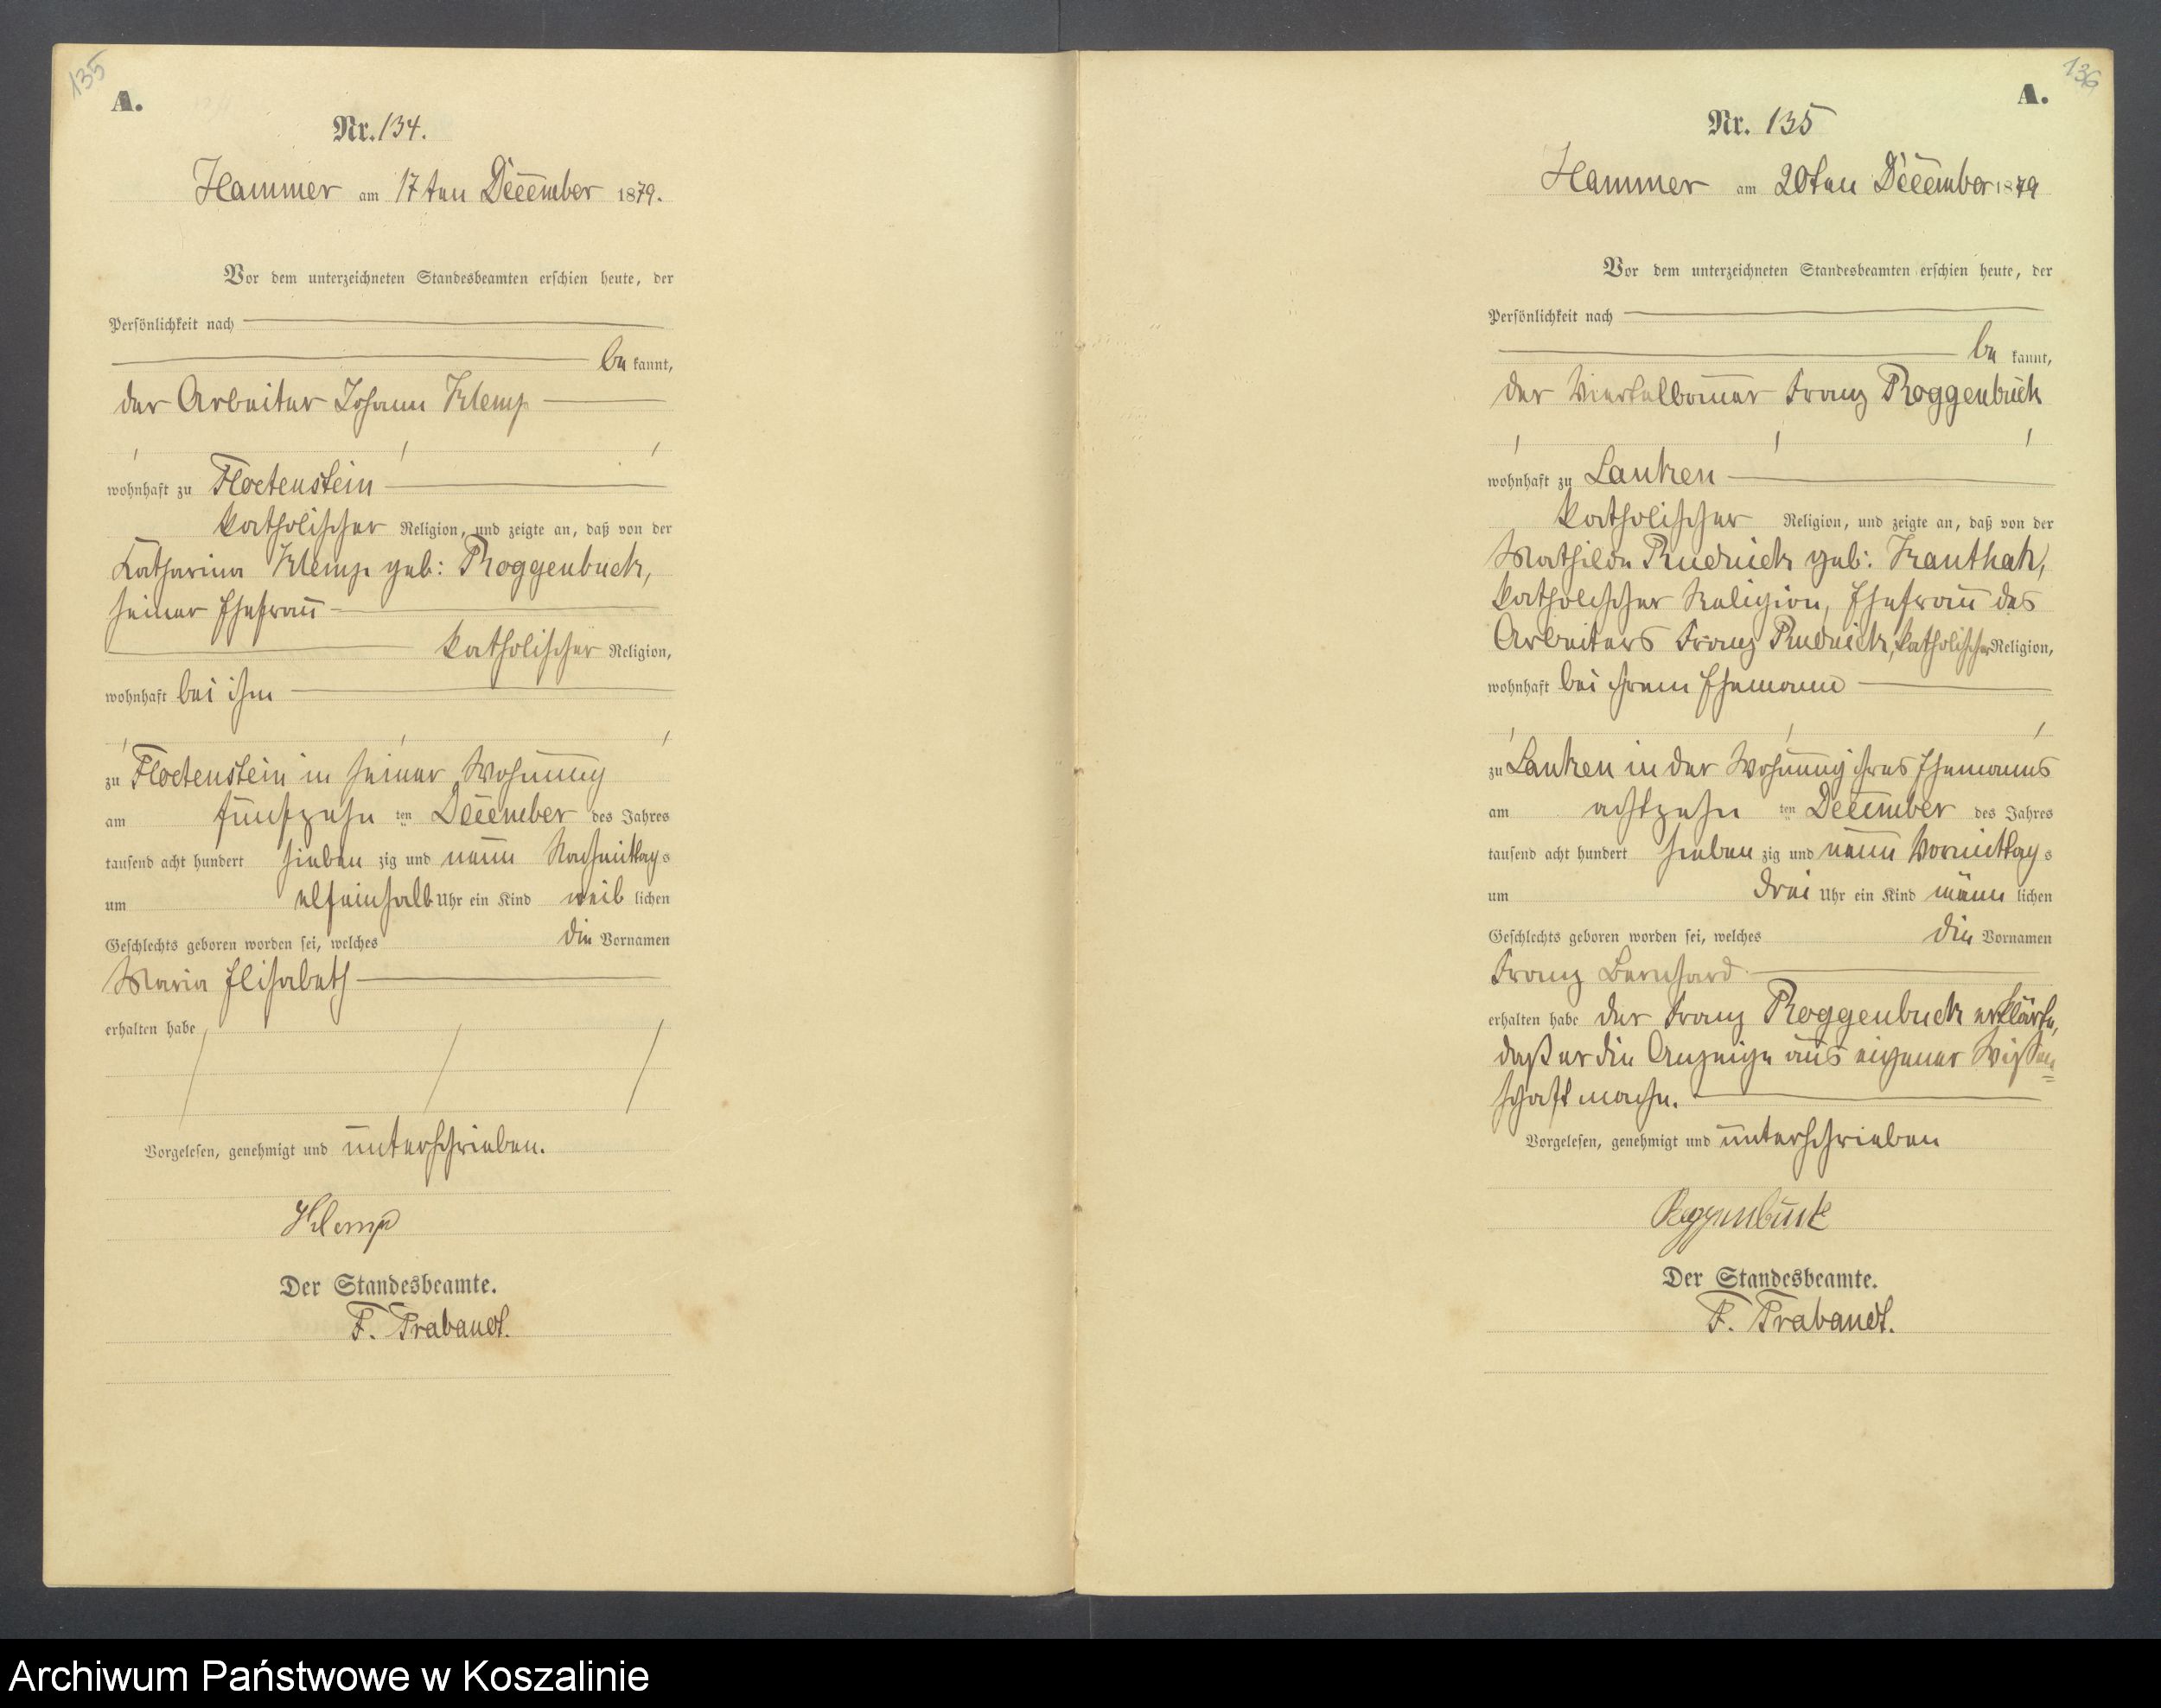 135
A.
Nr. 134.
Hammer am 17ten December 1879.
Vor dem unterzeichneten Standesbeamten erschien heute, der
Persönlichkeit nach
be kannt,
der Arbeiter Johann Klemp
wohnhaft zu Floetenstein
katholischer Religion, und zeigte an, daß von der
Katharina Klemp geb: Roggenbuck,
seiner Ehefrau
katholischer Religion,
wohnhaft bei ihm
zu Floetenstein in seiner Wohnung
am fünfzehn ten December des Jahres
tausend acht hundert sieben zig und neun Nachmittag s
um elfeinhalb Uhr ein Kind weib lichen
Geschlechts geboren worden sei, welches die Vornamen
Maria Elisabeth
erhalten habe
Vorgelesen, genehmigt und unterschrieben.
Klemp
Der Standesbeamte.
F. Trabandt.
136
A.
Nr. 135
Hammer am 20ten December 1879
Vor dem unterzeichneten Standesbeamten erschien heute, der
Persönlichkeit nach
be kannt,
der Viertelbauer Franz Roggenbuck
wohnhaft zu Lanken
katholischer Religion, und zeigte an, daß von der
Mathilde Rudnick geb: Kanthak,
katholischer Religion, Ehefrau des
Arbeiters Franz Rudnick, katholischer Religion,
wohnhaft bei ihrem Ehemann
zu Lanken in der Wohnung ihres Ehemannes
am achtzehn ten December des Jahres
tausend acht hundert sieben zig und neun Vormittag s
um drei Uhr ein Kind männ lichen
Geschlechts geboren worden sei, welches die Vornamen
Franz Bernhard
erhalten habe der Franz Roggenbuck erklärte,
daß er die Anzeige aus eigener Wissen=
schaft mache.
Vorgelesen, genehmigt und unterschrieben
Roggenbuck
Der Standesbeamte.
F. Trabandt.
Archiwum Państwowe w Koszalinie